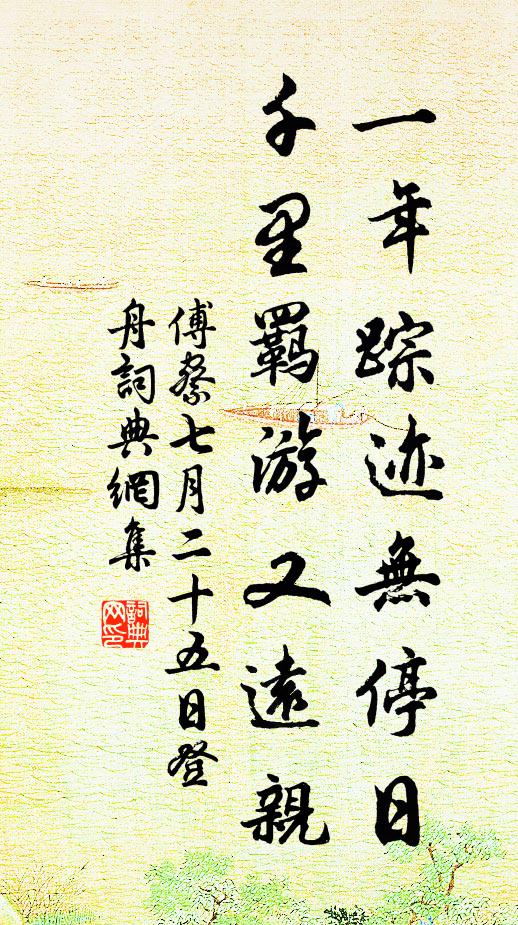 一年踪迹無停日
千里羈游又遠親
傅察七月二十五日登
舟詞典網集
詞典网印